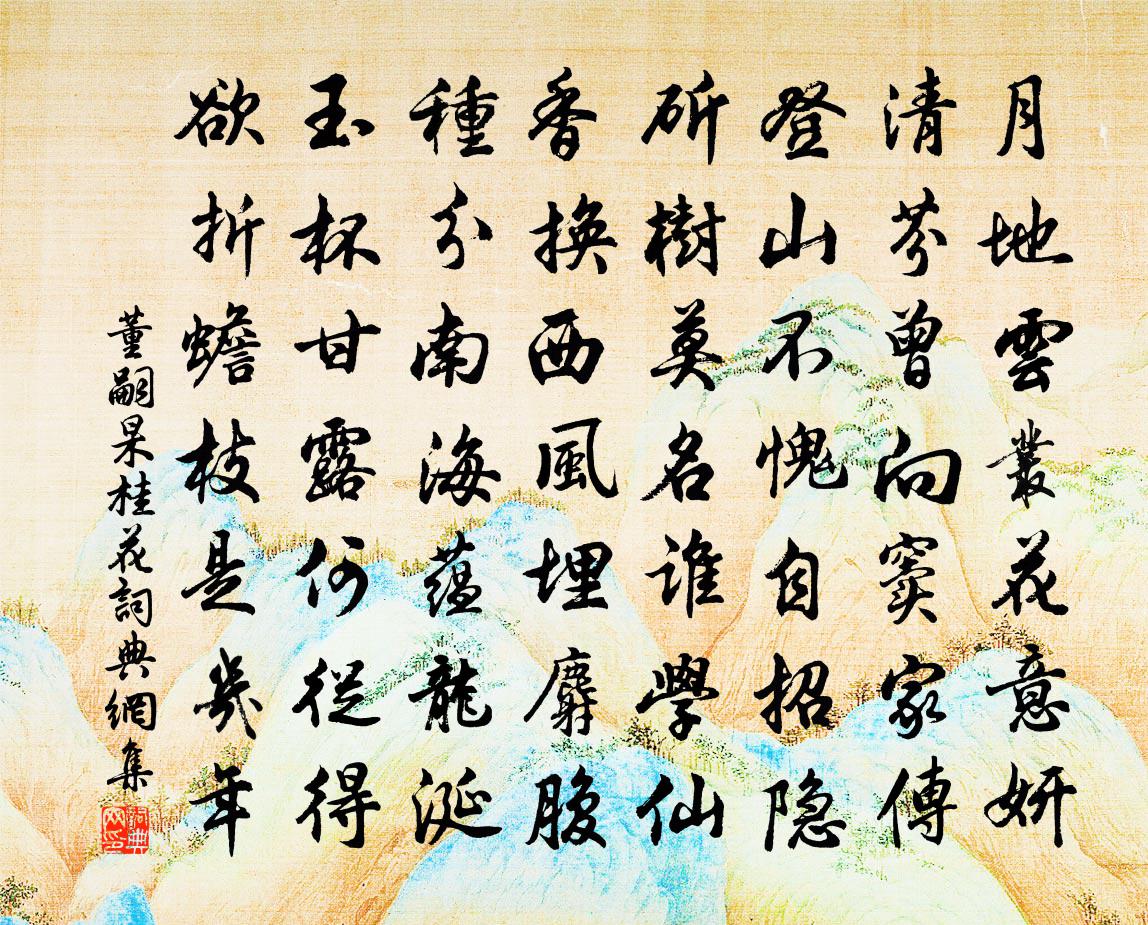 月地雲叢花意妍
清芬曾向竇家傳
登山不愧自招隐
斫樹莫名谁學仙
香換西風埋麝腹
種分南海蕴龍涎
玉杯甘露何從得
欲折蟾枝是幾年
董嗣杲桂花詞典網集